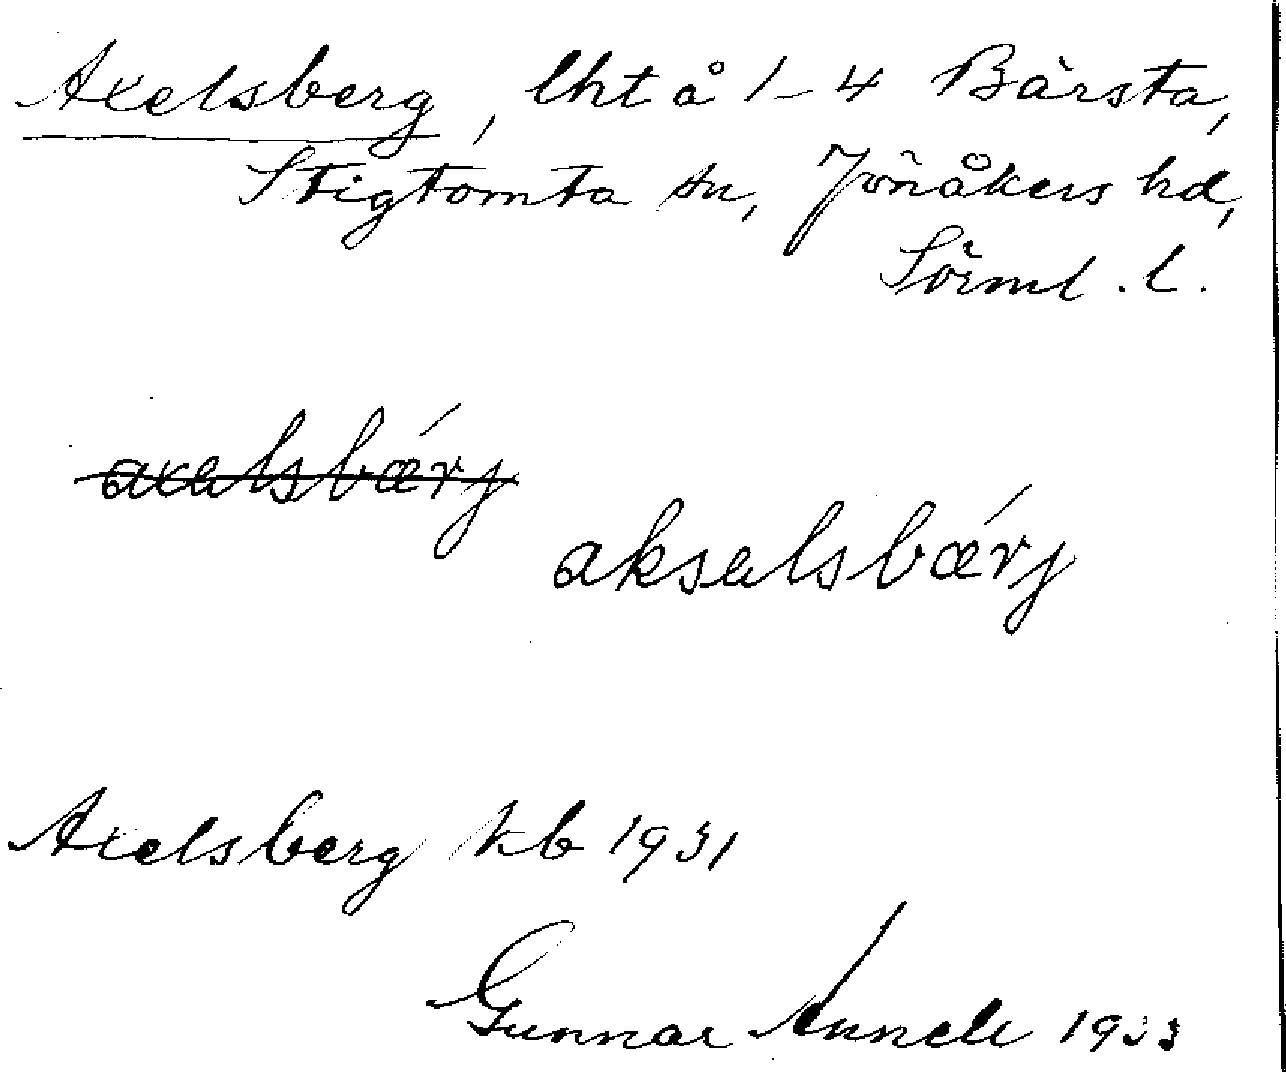 Axelsberg, lht å 1-4 Bärsta,
Stigtomta sn, Jönåkers hd,
Sörml. l.
axelsbærj
aksəlsbærj
Axelsberg kb 1931
Gunnar 1933